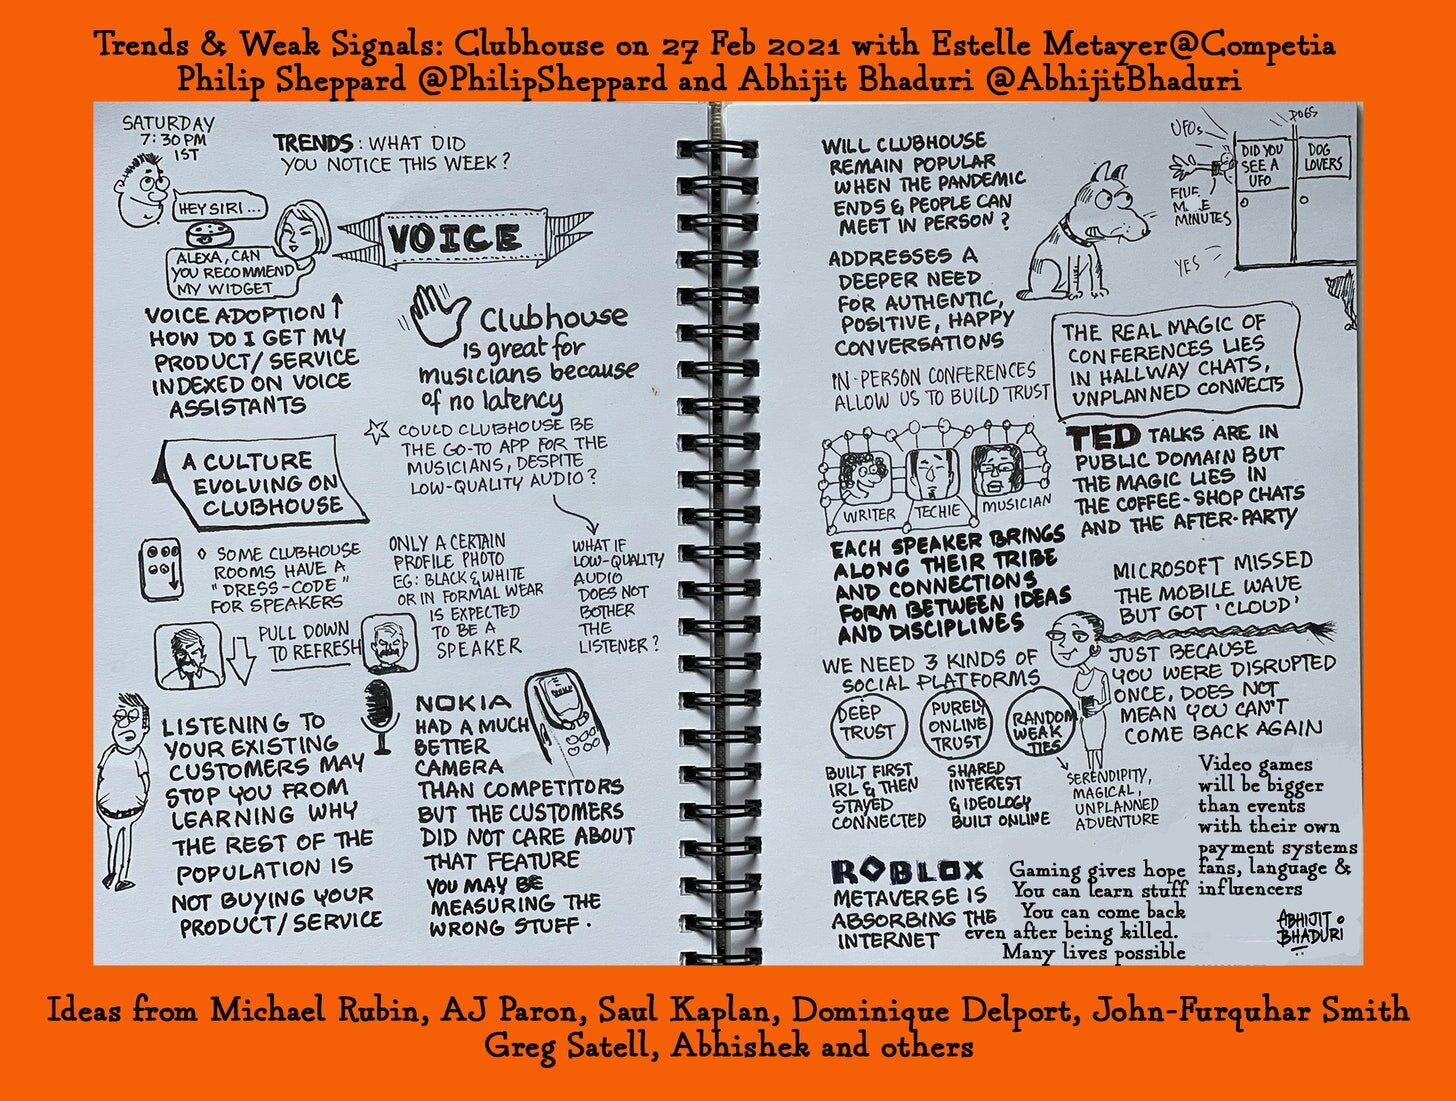 Trends & Weak Signals: Clubhouse on 27 Feb 2021 with Estelle Metayer@Competia
Philip Sheppard @PhilipSheppard and Abhijit Bhaduri @AbhijitBhaduri
SATURDAY
7:30 PM
IST
TRENDS: WHAT DID
YOU NOTICE THIS WEEK?
HEY SIRI ...
ALEXA, CAN
YOU RECOMMEND
MY WIDGET
VOICE
VOICE ADOPTION ↑
HOW DO I GET MY
PRODUCT/ SERVICE
INDEXED ON VOICE
ASSISTANTS
Clubhouse
is great for
musicians because
of no latency
COULD CLUBHOUSE BE
THE GO-TO APP FOR THE
MUSICIANS, DESPITE
LOW-QUALITY AUDIO?
WHAT IF
LOW-QUALITY
AUDIO
DOES NOT
BOTHER
THE
LISTENER?
A CULTURE
EVOLVING ON
CLUBHOUSE
SOME CLUBHOUSE
ROOMS HAVE A
"DRESS-CODE"
FOR SPEAKERS
PULL DOWN
TO REFRESH
ONLY A CERTAIN
PROFILE PHOTO
EG: BLACK & WHITE
OR IN FORMAL WEAR
IS EXPECTED
TO BE A
SPEAKER
LISTENING TO
YOUR EXISTING
CUSTOMERS MAY
STOP YOU FROM
LEARNING WHY
THE REST OF THE
POPULATION IS
NOT BUYING YOUR
PRODUCT/ SERVICE
NOKIA
HAD A MUCH
BETTER
CAMERA
THAN COMPETITORS
BUT THE CUSTOMERS
DID NOT CARE ABOUT
THAT FEATURE
YOU MAY BE
MEASURING THE
WRONG STUFF.
WILL CLUBHOUSE
REMAIN POPULAR
WHEN THE PANDEMIC
ENDS & PEOPLE CAN
MEET IN PERSON?
ADDRESSES A
DEEPER NEED
FOR AUTHENTIC,
POSITIVE, HAPPY
CONVERSATIONS
IN-PERSON CONFERENCES
ALLOW US TO BUILD TRUST
UFOs
DOGS
DID YOU
SEE A
UFO
DOG
LOVERS
FIVE
MINUTES
YES
THE REAL MAGIC OF
CONFERENCES LIES
IN HALLWAY CHATS,
UNPLANNED CONNECTS
WRITER
TECHIE
MUSICIAN
EACH SPEAKER BRINGS
ALONG THEIR TRIBE
AND CONNECTIONS
FORM BETWEEN IDEAS
AND DISCIPLINES
TED TALKS ARE IN
PUBLIC DOMAIN BUT
THE MAGIC LIES IN
THE COFFEE-SHOP CHATS
AND THE AFTER-PARTY
MICROSOFT MISSED
THE MOBILE WAVE
BUT GOT 'CLOUD'
JUST BECAUSE
YOU WERE DISRUPTED
ONCE, DOES NOT
MEAN YOU CAN'T
COME BACK AGAIN
WE NEED 3 KINDS OF
SOCIAL PLATFORMS
DEEP
TRUST
PURELY
ONLINE
TRUST
RANDOM
WEAK
TIES
BUILT FIRST
IRL & THEN
STAYED
CONNECTED
SHARED
INTEREST
& IDEOLOGY
BUILT ONLINE
SERENDIPITY,
MAGICAL,
UNPLANNED
ADVENTURE
ROBLOX
METAVERSE IS
ABSORBING THE
INTERNET
Gaming gives hope
You can learn stuff
You can come back
even after being killed.
Many lives possible
Video games
will be bigger
than events
with their own
payment systems
fans, language &
influencers
ABHIJIT
BHADURI
Ideas from Michael Rubin, AJ Paron, Saul Kaplan, Dominique Delport, John-Furquhar Smith
Greg Satell, Abhishek and others